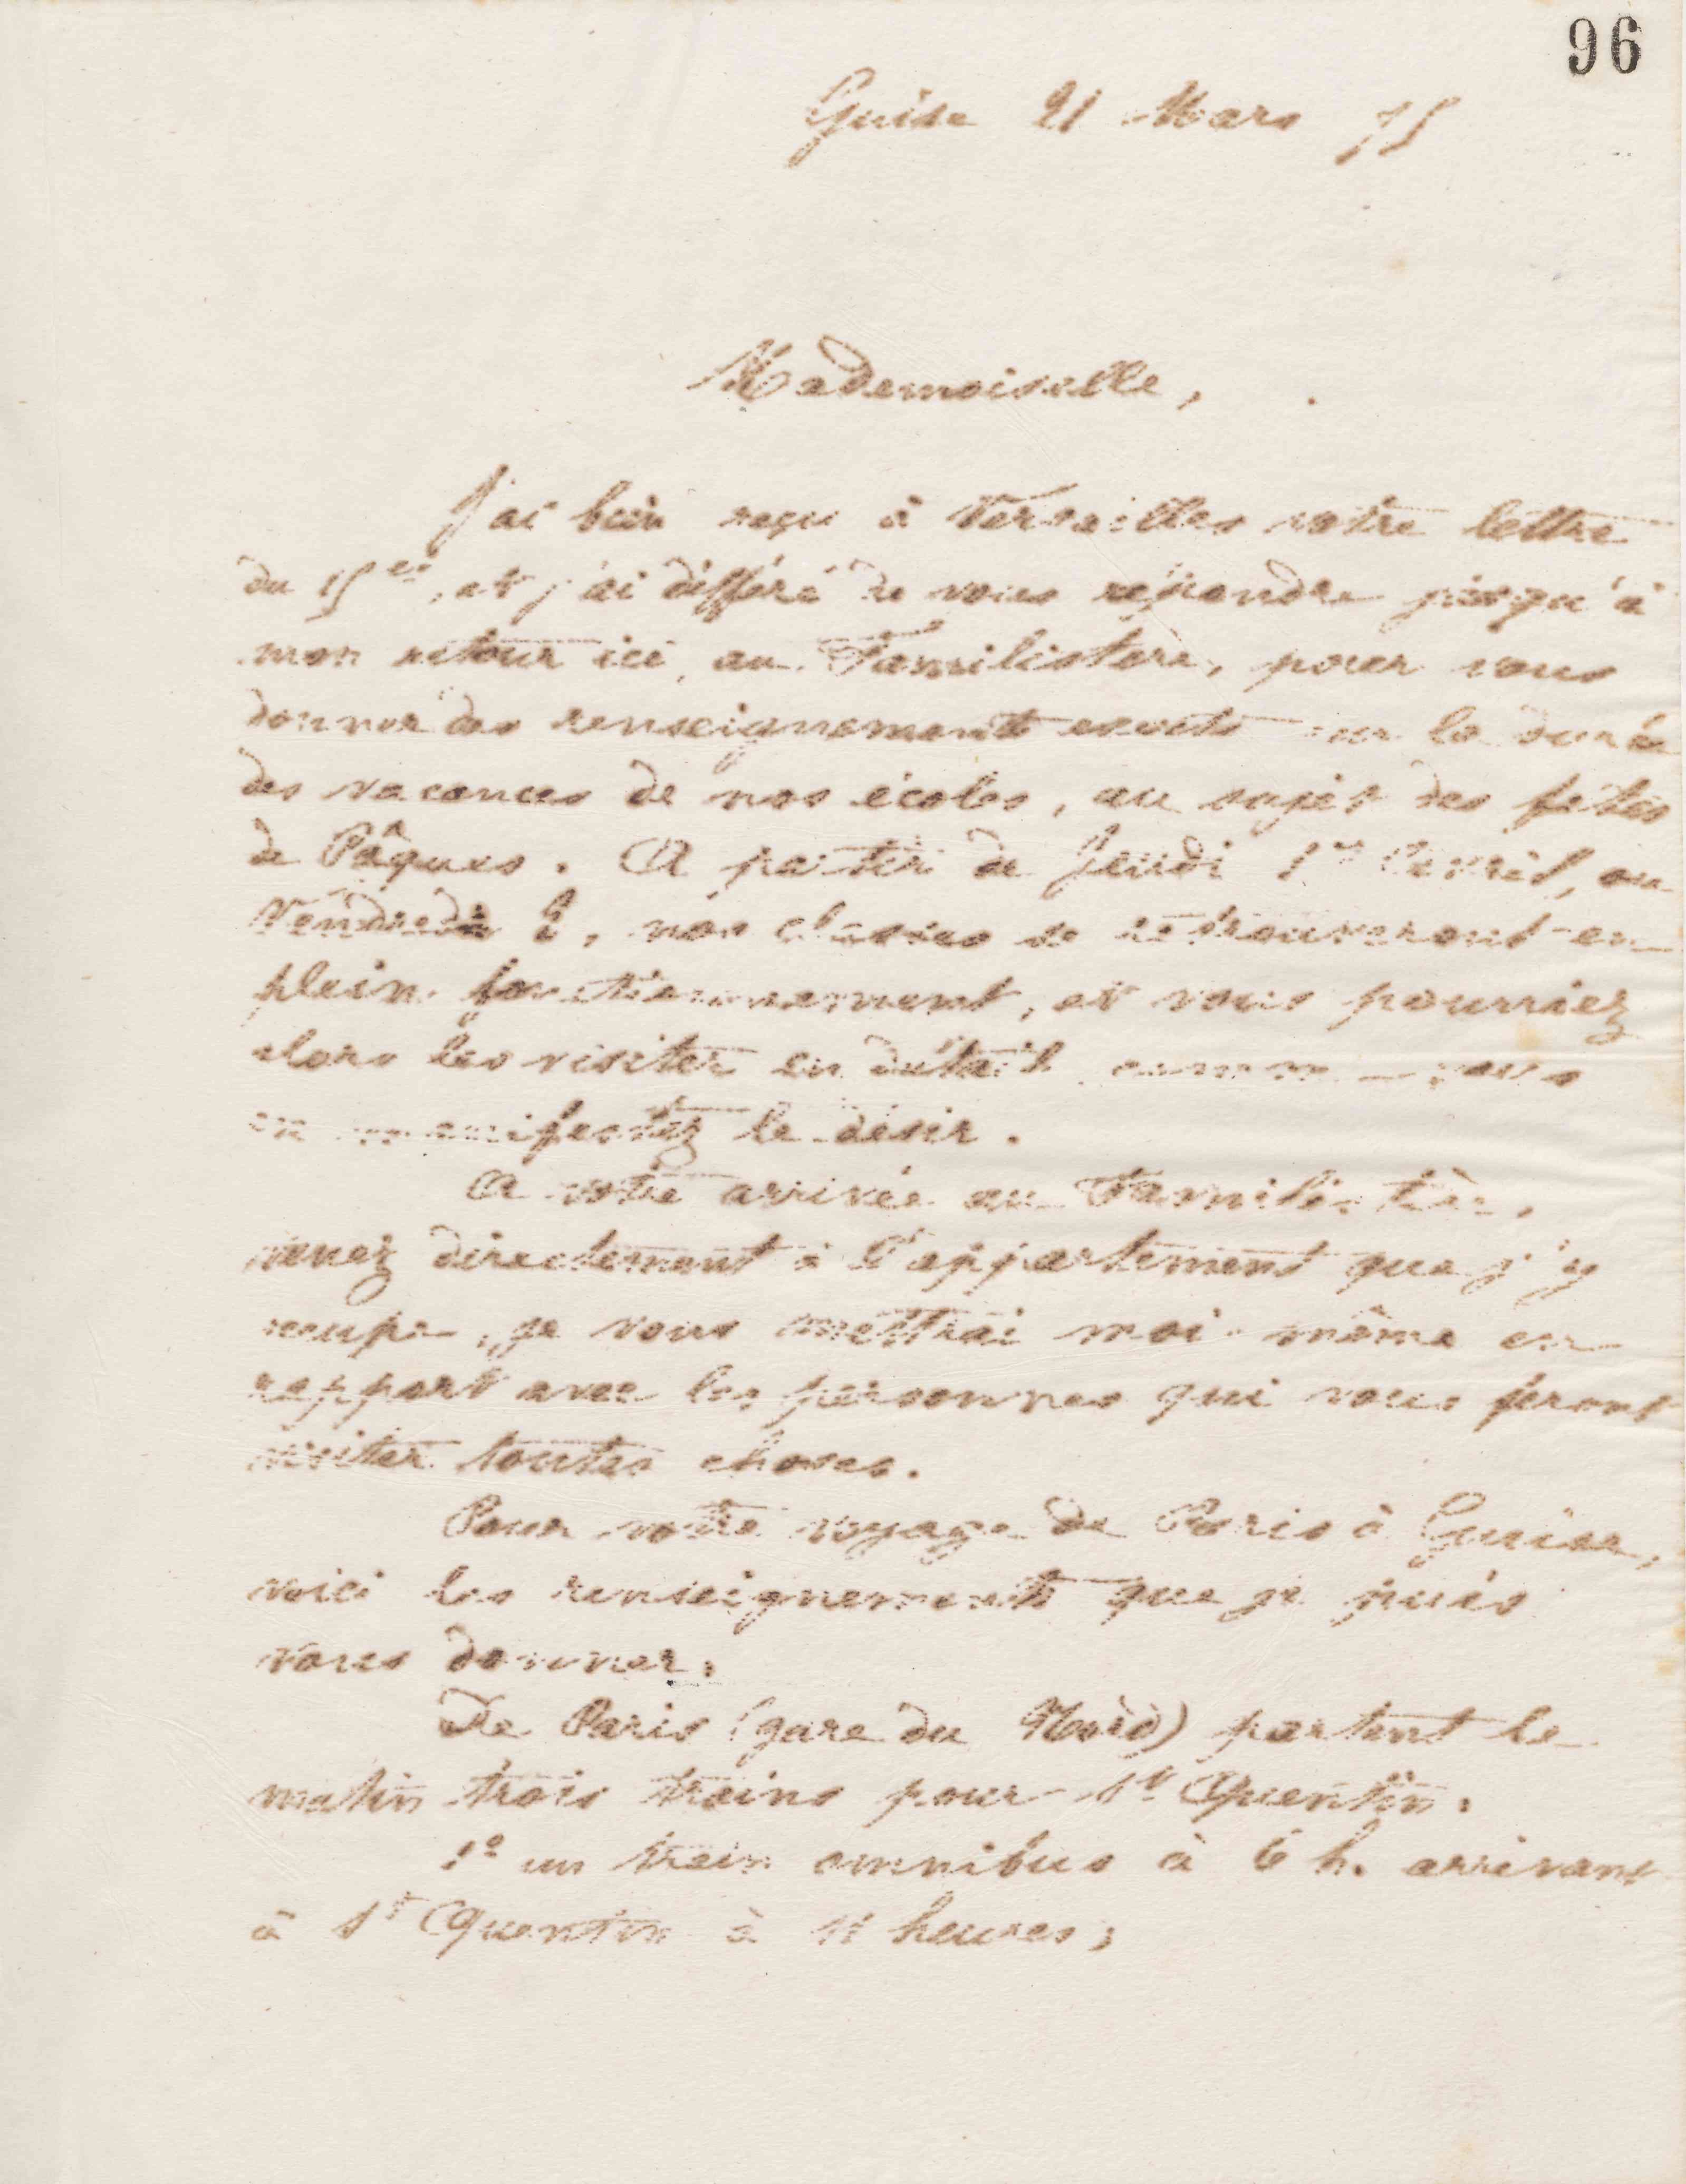 96
Guise 21 Mars 75
Mademoiselle,
J'ai bien reçu à Versailles votre lettre
du 15 et, et j'ai différé de vous répondre jusqu'à
mon retour ici, au Familistère, pour vous
donner des renseignements exacts sur la durée
des vacances de nos écoles, au sujet des fêtes
de Pâques. A partir de Jeudi 1er Avril, ou
Vendredi 2, nos classes se retrouveront en
plein fonctionnement, et vous pourriez
alors les visiter en détail comme vous
en manifestez le désir.
A votre arrivée au Familistère,
venez directement à l'appartement que j'y
occupe, je vous mettrai moi-même en
rapport avec les personnes qui vous feront
visiter toutes choses.
Pour votre voyage de Paris à Guise,
voici les renseignements que je puis
vous donner.
De Paris (gare du Nord) partent le
matin trois trains pour St Quentin.
1º un train omnibus à 6 h. arrivant
à St Quentin à 11 heures;